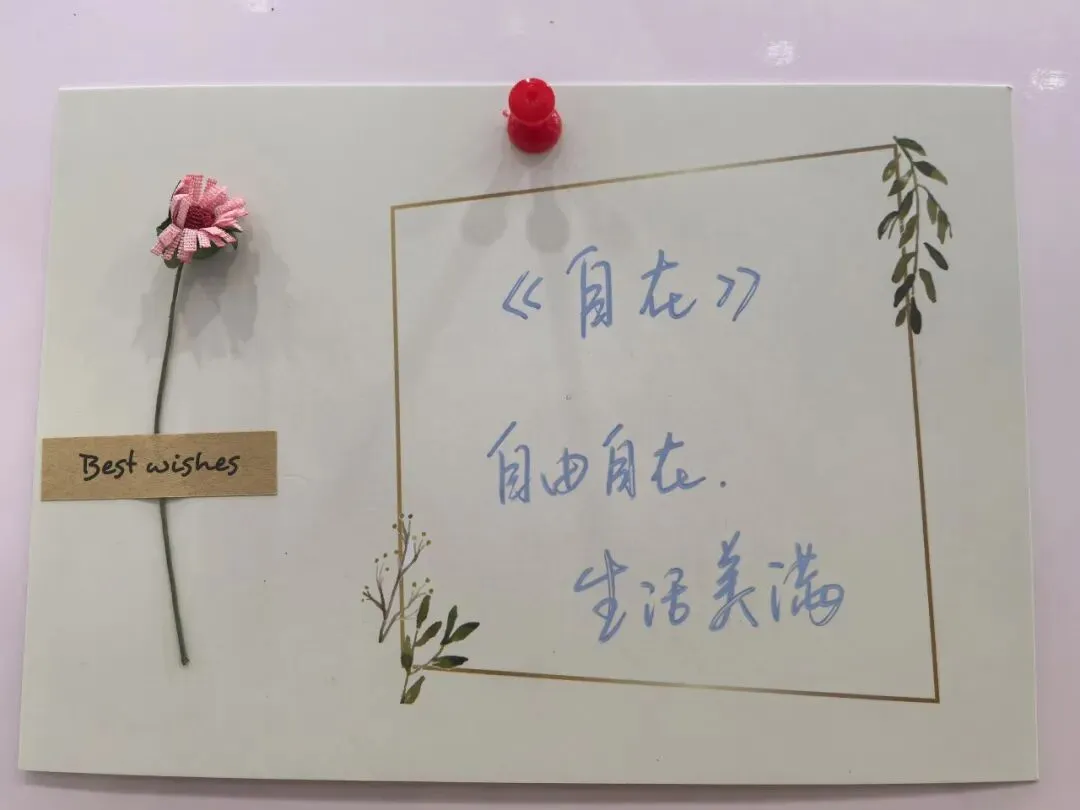 Best wishes
《自在》
自由自在.
生活美满